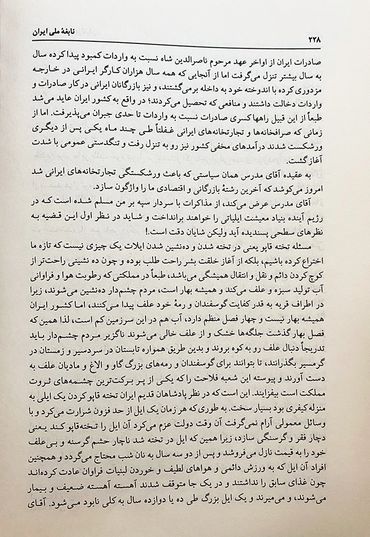 ۲۲۸ نابغهٔ ملی ایران
صادرات ایران از اواخر عهد مرحوم ناصرالدین شاه نسبت به واردات کمبود پیدا کرده سال
به سال بیشتر تنزل می‌گرفت اما از آنجایی که همه سال هزاران کارگر ایرانی در خارجه
مزدوری کرده با اندوخته خود به داخله برمی‌گشتند، و نیز بازرگانان ایرانی در کار صادرات و
واردات دخالت داشتند و منافعی که تحصیل می‌کردند؛ در واقع به کشور ایران عاید می‌شد
طبعاً از این قبیل راهها کسری صادرات نسبت به واردات تا حدی جبران می‌پذیرفت. اما از
زمانی که صرافخانه‌ها و تجارتخانه‌های ایرانی غفلتاً طی چند ماه یکی پس از دیگری
ورشکست شدند درآمدهای مخفی کشور نیز رو به تنزل رفت و تنگدستی عمومی با شدت
آغاز گشت.
به عقیده آقای مدرس همان سیاستی که باعث ورشکستگی تجارتخانه‌های ایرانی شد
امروز می‌کوشد که آخرین رشتهٔ بازرگانی و اقتصادی ما را واژگون سازد.
آقای مدرس عرض می‌کند، از مذاکرات با سردار سپه بر من مسلم شده است که در
رژیم آینده بنیاد معیشت ایلیاتی را خواهند برانداخت و شاید در نظر اول این قضیه به
نظرهای سطحی پسندیده آید ولیکن شایان دقت است.!
مسئله تخته قاپو یعنی در تخته شدن و ده‌نشین شدن ایلات یک چیزی نیست که تازه ما
اختراع کرده باشیم، بلکه از آغاز خلقت بشر راحت طلب بوده و چون ده نشینی راحت‌تر از
کوچ کردن دائم و نقل و انتقال همیشگی می‌باشد، طبعاً در مملکتی که رطوبت هوا و فراوانی
آب تولید سبزه و علف می‌کند و همیشه بهار است، مردم چشم‌دار ده‌نشین می‌شوند، زیرا
در اطراف قریه به قدر کفایت گوسفندان و رمهٔ خود علف پیدا می‌کنند، اما کشور ایران
همیشه بهار نیست و چهار فصل منظم دارد، آب هم در این سرزمین کم است، لذا همین که
فصل بهار گذشت جلگه‌ها خشک و از علف خالی می‌شوند. ناگزیر مردم چشم‌دار باید
تدریجاً دنبال علف رو به کوه بروند و بدین طریق همواره تابستان در سردسیر و زمستان در
گرمسیر بگذرانند، تا بتوانند برای گوسفندان و رمه‌های بزرگ گاو و الاغ و مادیان علف به
دست آورند و پیوسته این شعبه فلاحت را که یکی از پر برکت‌ترین چشمه‌های ثروت
مملکت است بیفزایند. این است که در نظر پادشاهان قدیم ایران تخته قاپو کردن یک ایلی به
منزله کیفری بود بسیار سخت. به طوری که هر زمان یک ایل از حد فزون شرارت می‌کرد و با
وسائل معمولی آرام نمی‌گرفت آن وقت دولت عزم می‌کرد آن ایل را تخته قاپو کند یعنی
دچار فقر و گرسنگی سازد، زیرا همین که ایل در تخته شد ناچار حشم گرسنه و بی‌علف
خود را به قیمت نازل می‌فروشد و پس از دو سه سال به نان شب محتاج می‌گردد و همچنین
افراد آن ایل که به ورزش دائمی و هواهای لطیف و خوردن لبنیات فراوان عادت کرده‌اند
چون غذای سابق را نداشتند و در یک جا متوقف شدند آهسته آهسته ضعیف و بیمار
می‌شوند، و می‌میرند و یک ایل بزرگ طی ده یا دوازده سال به کلی نابود می‌شود. آقای